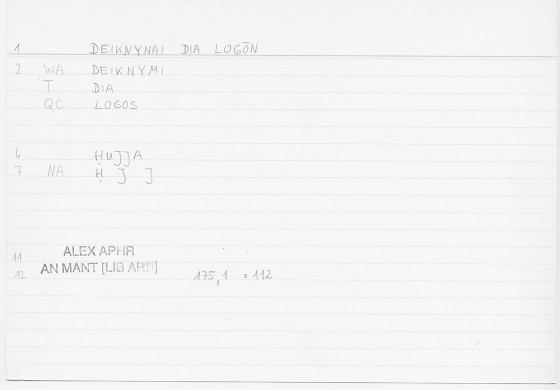 1 DEIKNYNAI DIA LOGŌN
2 WA DEIKNYMI
T DIA
QC LOGOS
6 ḤUJJA
7 NA Ḥ J J
11 ALEX APHR
12 AN MANT [LIB ARB] 175,1 = 112